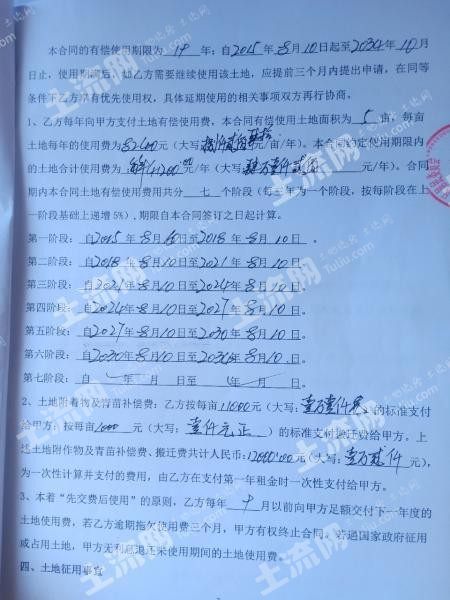 本合同的有偿使用期限为 19 年；自2015年8月10日起至2034年10月
日止，使用期满后，如乙方需要继续使用该土地，应提前三个月内提出申请，在同等
条件下乙方享有优先使用权，具体延期使用的相关事项双方再行协商。
1、乙方每年向甲方支付土地有偿使用费，本合同有偿使用土地面积为 5 亩，每亩
土地每年的使用费为 元（大写： 元/亩/年）。本合同约定使用期限内
的土地合计使用费为 元/年（大写： 元/年）。合同
期内本合同土地有偿使用费用共分 七 个阶段（每三年为一个阶段，按每阶段在上
一阶段基础上递增5%），期限自本合同签订之日起计算。
第一阶段： 自2015年8月10日至2018年8月10日 。
第二阶段： 自2018年8月10日至2021年8月10日。
第三阶段： 自2021年8月10日至2024年8月10日。
第四阶段： 自2024年8月10日至2027年8月10日。
第五阶段： 自2027年8月10日至2030年8月10日。
第六阶段： 自2030年8月10日至 年8月10日。
第七阶段： 自 年 月 日至 年 月 日。
2、土地附着物及青苗补偿费：乙方按每亩 11000元（大写：壹万壹仟元）的标准支付
给甲方；按每亩1000 元（大写： 壹仟元正 ）的标准支付搬迁费给甲方。上
述土地附作物及青苗补偿费、搬迁费共计人民币：12000.00元（大写：壹万贰仟 元），
为一次性计算并支付的费用，由乙方在支付第一年租金时一次性支付给甲方。
3、本着“先交费后使用”的原则，乙方每年 9 月以前向甲方足额交付下一年度的
土地使用费，若乙方逾期拖欠使用费三个月，甲方有权终止合同。若遇国家政府征用
或占用土地，甲方无利息退还未使用期间的土地使用费。
四、土地征用事宜
土流网
Tuliu.com